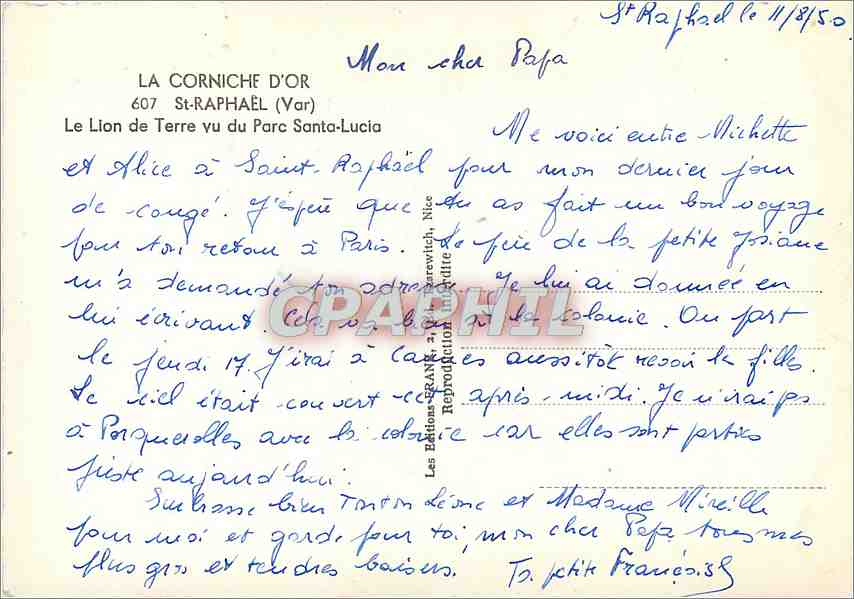 St Raphaël le 11/8/50
Mon cher Papa
LA CORNICHE D'OR
607 St-RAPHAËL (Var)
Le Lion de Terre vu du Parc Santa-Lucia
Me voici entre Michette
et Alice à Saint-Raphaël pour mon dernier jour
de congé. J'espère que tu as fait un bon voyage
pour ton retour à Paris. Le père de la petite Josiane
m'a demandé ton adresse. Je lui ai donnée en
lui écrivant. Cela va bien à la colonie. On part
le jeudi 17. J'irai à Cannes aussitôt revoir les filles.
Le ciel était couvert cet après-midi. Je n'irai pas
à Porquerolles avec la colonie car elles sont parties
juste aujourd'hui.
Embrasse bien Tonton Léone et Madame Mireille
pour moi et garde pour toi, mon cher Papa, tous mes
plus gros et tendres baisers.
Ta petite Françoise
Les Editions FRANK, 2, Nice
Reproduction interdite
CPAPHIL